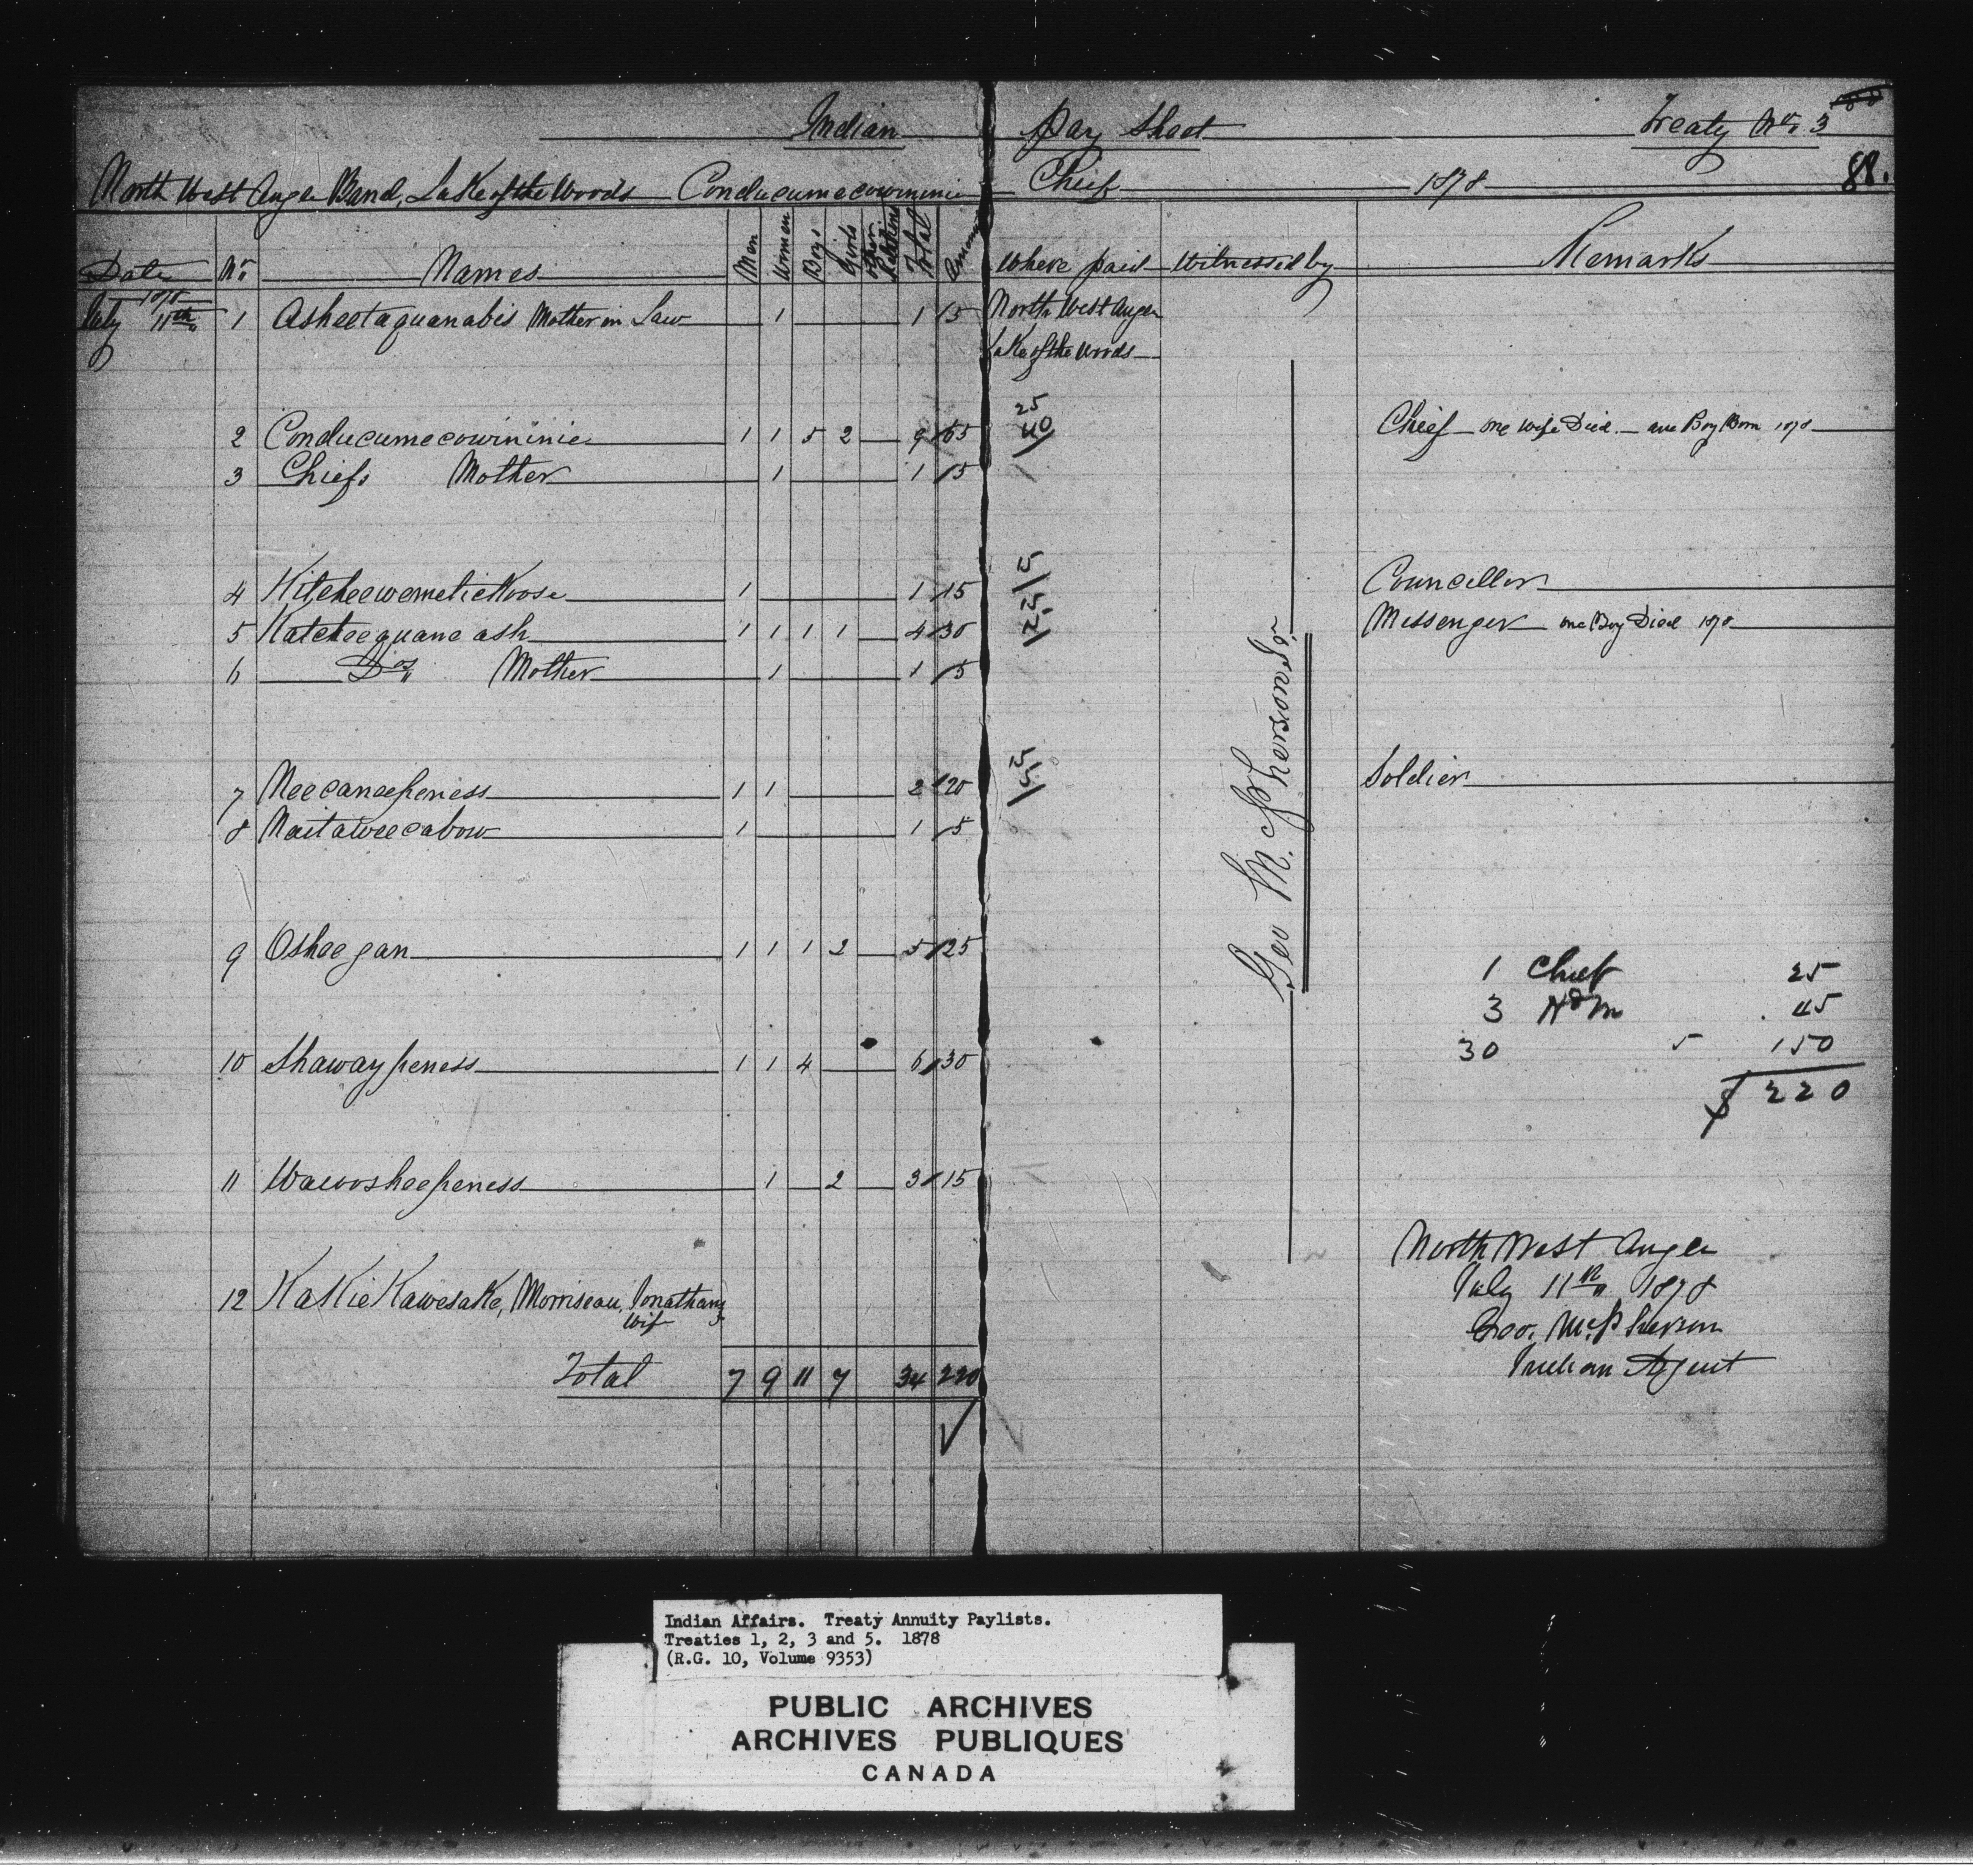 Indian Pay Sheet Treaty No. 3
North West Angle Band, Lake of the Woods Conducumecowininie Chief 1878 88.
Date No. Names Men Women Boys Girls Other Relations Total Amount Where paid Witnessed by Remarks
1878 July 11th 1 Asheetaquanabis Mother in Law 1 1 5 North West Angle
Lake of the Woods
25
2 Conducumecowininie 1 1 5 2 9 65 40 Chief one wife Died. one Boy Born 1878
3 Chiefs Mother 1 1 5
4 Kitcheewemetickoose 1 1 15 Councillor
5 Katcheequaneash 1 1 1 1 4 30 Messenger one Boy Died 1878
6 Do. Mother 1 1 5
7 Neecaneepeness 1 1 2 20 Soldier
8 Naitaweecabow 1 1 5
Geo McPherson Sr.
9 Osheegan 1 1 1 2 5 25
1 Chief 25
3 Hdm 45
30 5 150
$ 220
10 Shawaypeness 1 1 4 6 30
11 Wawosheepeness 1 2 3 15
12 KaKieKawesaKe, Morriseau, Jonathans
Wife
Total 7 9 11 7 34 220
North West Angle
July 11th 1878
Geo. McPherson
Indian Agent
Indian Affairs. Treaty Annuity Paylists.
Treaties 1, 2, 3 and 5. 1878
(R.G. 10, Volume 9353)
PUBLIC ARCHIVES
ARCHIVES PUBLIQUES
CANADA